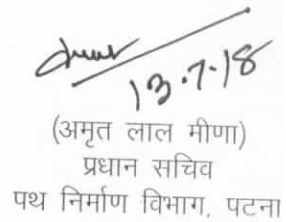 13.7.18
(अमृत लाल मीणा)
प्रधान सचिव
पथ निर्माण विभाग, पटना